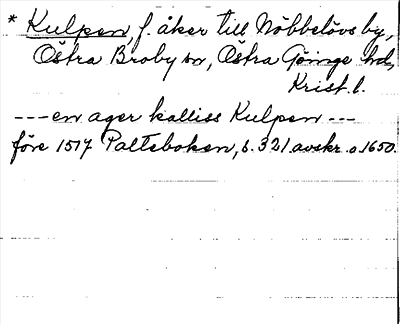 * Kulpen, f. åker till Nöbbelövs by,
Östra Broby sn, Östra Göinge hd,
Krist. l.
--- en ager kalliss Kulpen ---
före 1517 Palteboken, s. 321 avskr. o 1650.